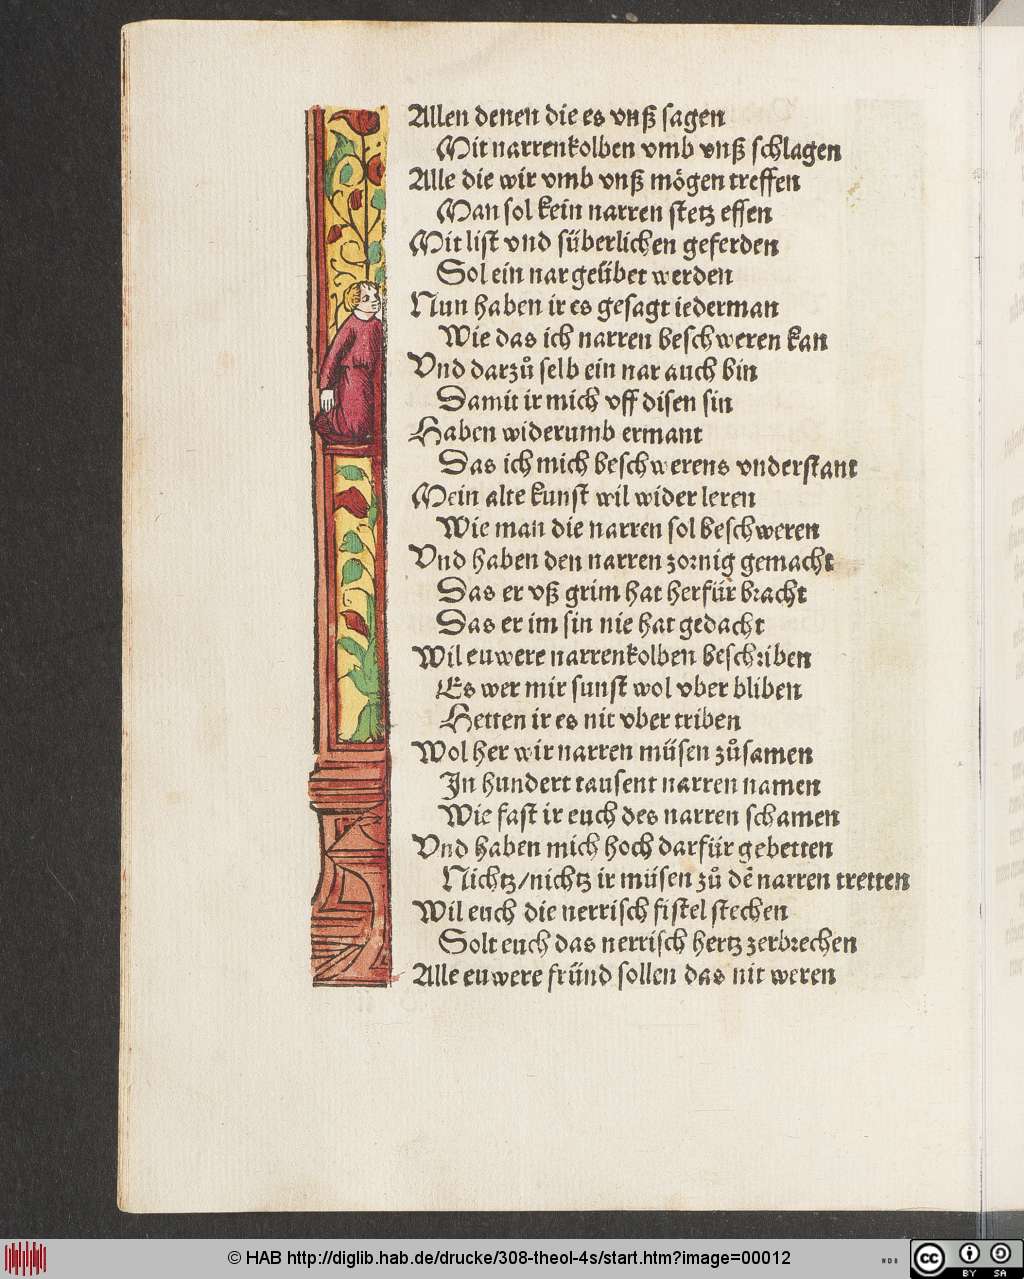 Allen denen die es vnß sagen
Mit narrenkolben vmb vnß schlagen
Alle die wir vmb vnß mögen treffen
Man sol kein narren stetz effen
Mit list vnd süberlichen geferden
Sol ein nar geübet werden
Nun haben ir es gesagt iederman
Wie das ich narren beschweren kan
Vnd darzuͦ selb ein nar auch bin
Damit ir mich vff disen sin
Haben widerumb ermant
Das ich mich beschwerens vnderstant
Mein alte kunst wil wider leren
Wie man die narren sol beschweren
Vnd haben den narren zornig gemacht
Das er vß grim hat herfür bracht
Das er im sin nie hat gedacht
Wil euwere narrenkolben beschriben
Es wer mir sunst wol vber bliben
Hetten ir es nit vber triben
Wol her wir narren müsen zuͦsamen
In hundert tausent narren namen
Wie fast ir euch des narren schamen
Vnd haben mich hoch darfür gebetten
Nichtz/nichtz ir müsen zuͦ dē narren tretten
Wil euch die nerrisch fistel stechen
Solt euch das nerrisch hertz zerbrechen
Alle euwere fründ sollen das nit weren
© HAB http://diglib.hab.de/drucke/308-theol-4s/start.htm?image=00012
WDB
cc BY SA